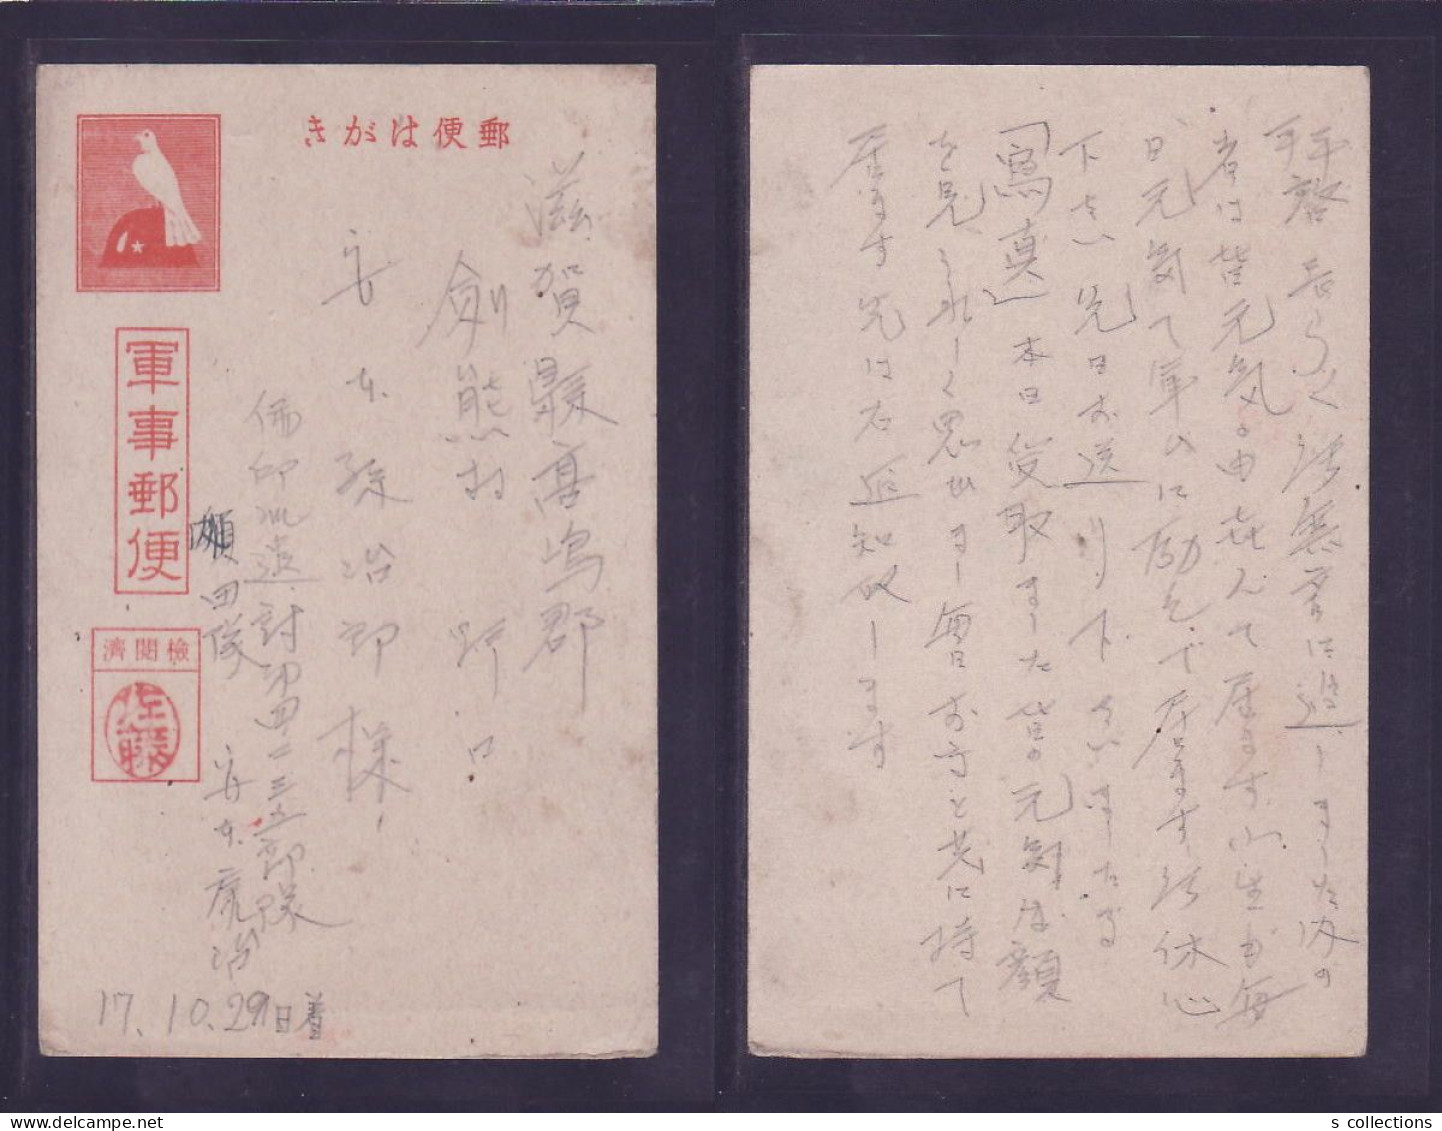 郵便はがき
滋賀縣高嶋郡
劍熊村 野口
安本 孫治郎 様
軍事郵便
檢閲濟
佐藤
佛印派遣 討第四二三五部隊
瀬田隊
安本
17.10.29日着
拝啓 長らく 御無音に過しました 内の
者は皆元気の由 喜んで居ます 小生も毎
日元気で軍ムに励んで居ます 御休心
下さい 先日お送り下さいました
「寫真」本日受取ました 皆の元気な顔
を見うれしく思出し 毎日お守と共に持て
居ます 先は右 近知せします
s collections